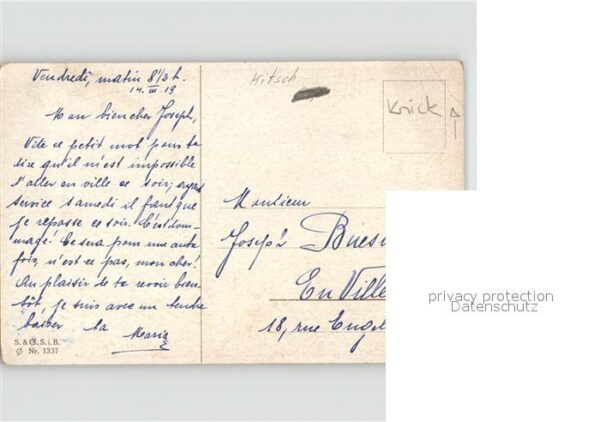 Vendredi, matin 8 1/2 h.
14. III. 19
Mon bien cher Joseph,
Vite ce petit mot pour te
dire qu'il m'est impossible
d'aller en ville ce soir, ayant
service samedi il faut que
je repasse ce soir. C'est dom-
mage! Ce sera pour une autre
fois, n'est ce pas, mon cher!
Au plaisir de te revoir bien-
tôt, je suis avec un tendre
baiser ta
Maria
S. & G. S. i. B.
Nr. 1337
Kitsch
Knick
Monsieur
Joseph
En Ville
18, rue
privacy protection
Datenschutz